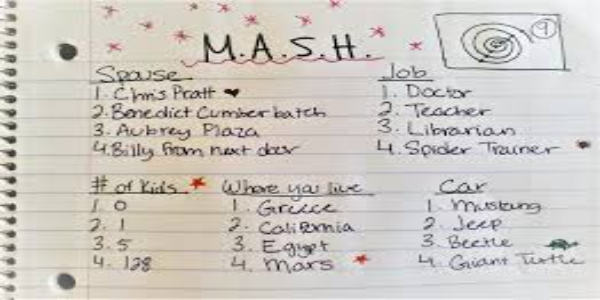 M.A.S.H.
9
Spouse
1. Chris Pratt
2. Benedict Cumberbatch
3. Aubrey Plaza
4. Billy from next door
Job
1. Doctor
2. Teacher
3. Librarian
4. Spider Trainer
# of Kids
1. 0
2. 1
3. 5
4. 128
Where you live
1. Greece
2. California
3. Egypt
4. Mars
Car
1. Mustang
2. Jeep
3. Beetle
4. Giant Turtle